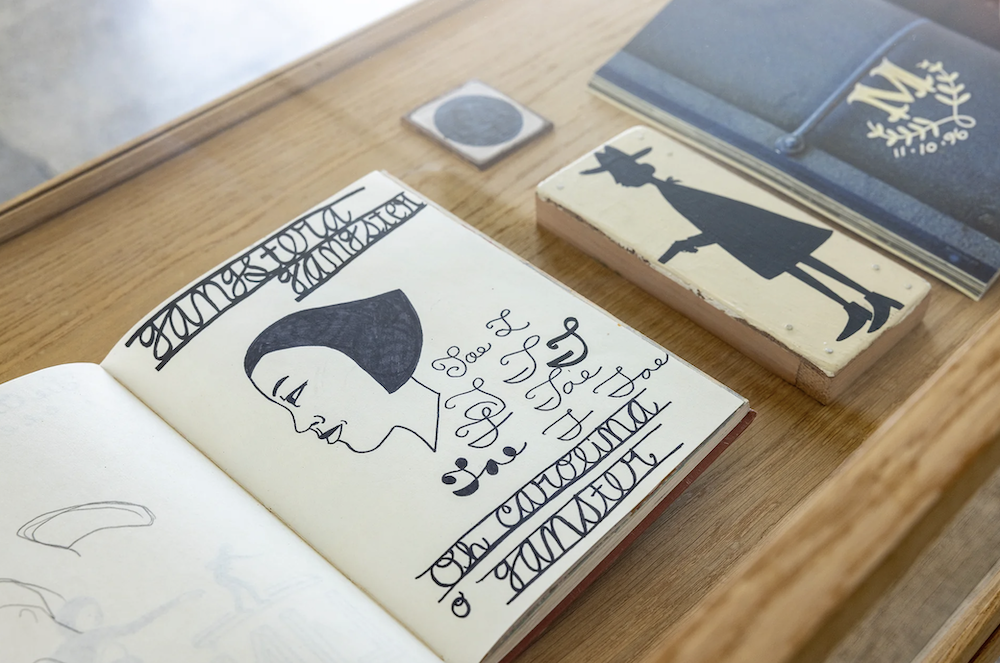 gangstera
gangster
Joe J
J J
J Joe Joe
J J
Joe
Oh carolina
o gangster
M
11·10·96